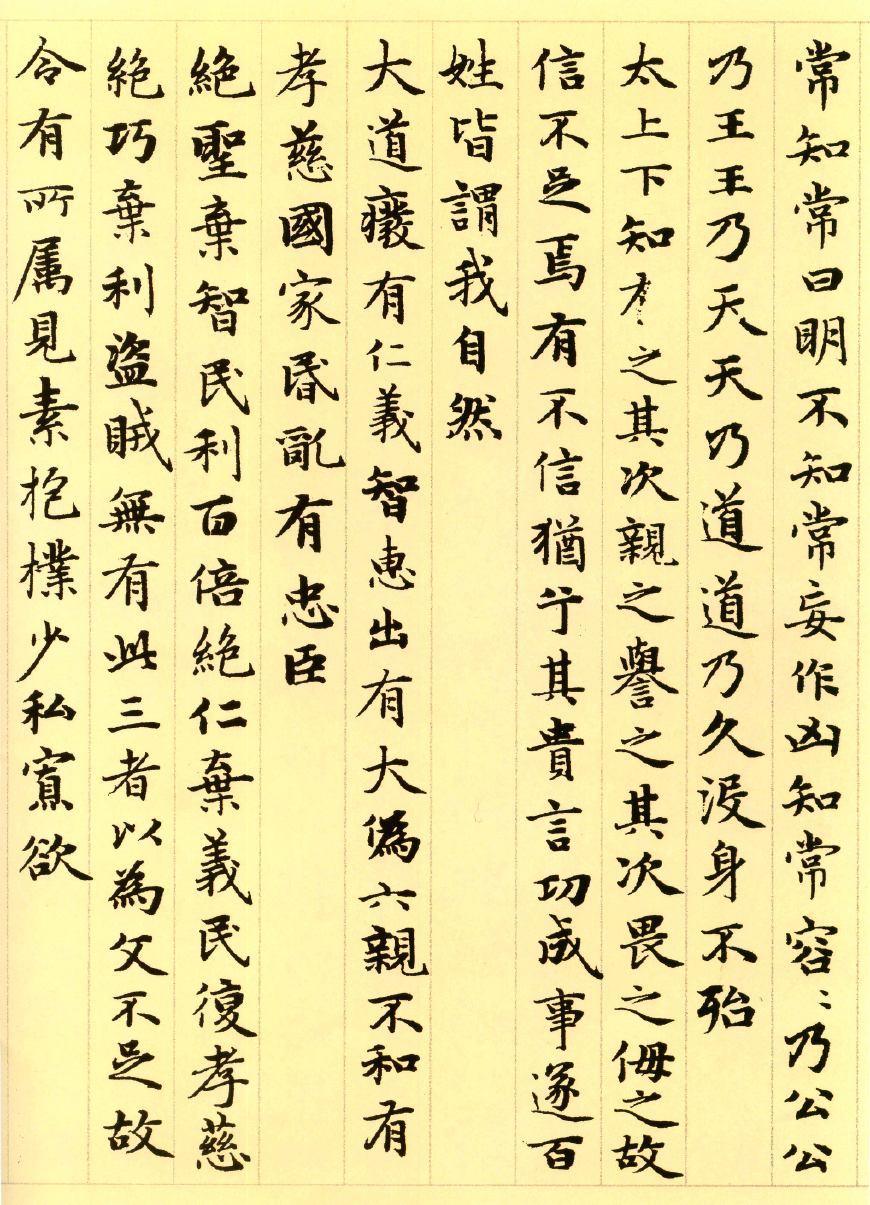 常知常曰明不知常妄作凶知常容〻乃公公
乃王王乃天天乃道道乃久没身不殆
太上下知有之其次親之譽之其次畏之侮之故
信不足焉有不信猶兮其貴言功成事遂百
姓皆謂我自然
大道癈有仁義智惠出有大偽六親不和有
孝慈國家昏亂有忠臣
絶聖棄智民利百倍絶仁棄義民復孝慈
絶巧棄利盜賊無有此三者以為文不足故
令有所属見素抱樸少私寡欲